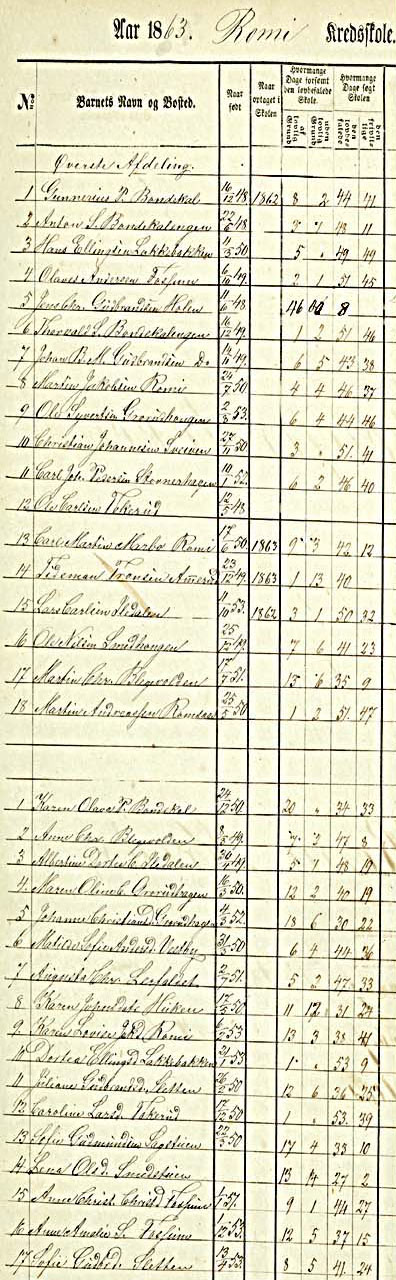 Aar 1863. Romi Kredsskole.
No Barnets Navn og Bosted. Naar født Naar optaget i Skolen Hvormange Dage forsømt den lovbefalede Skole. Hvormange Dage søgt Skolen
af lovlig Grund uden lovlig Grund den lovbefalede den frivillige
Øverste Afdeling.
1 Gunnerius P. Bondekal 16/12 48 1862 8 2 44 41
2 Anton S. Bondekalengen 22/6 48 3 7 43 11
3 Hans Ellingsen Lakkebakken 50 5 " 49 49
4 Olaves Andersen Fossum 6/10 49. 2 1 51 45
5 Jens Chr. Gudbrandsen Holen 48. 46 8
6 Thorvald S. Bondekalengen 16/12 49. 1 2 51 46
7 Johan B. M. Gudbrandsen Do 49. 6 5 43 38
8 Martin Jakobsen Romi 24/7 50 4 4 46 37
9 Ole Syvertsen Grorudhaugen 53. 6 4 44 46
10 Christian Johannesen Sveiven 27/11 50 3 " 51. 41
11 Carl Joh. Pedersen Stovnerhagen 10/1 52. 6 2 46 40
12 Ole Carlsen Tokerud 12/5 48
13 Carl Martin Marbo Romi 17/6 50. 1863 9 3 42 12
14 Tideman Fronsen Amerud 23/12 49. 1863 1 13 40
15 Lars Carlsen Nedalen 11/10 53. 1862 3 1 50 32
16 Ole Nilsen Smedhaugen 25/12 49. 7 6 41 23
17 Martin Chr. Bleyvolden 51. 13 6 35 9
18 Martin Andreassen Romsaas 25/5 50 1 2 51. 47
1 Karen Olava P. Bondekal 24/12 50. 20 " 34 33
2 Anne Chr. Bleyvolden 49. 7 3 47 8
3 Albertine Dortea C. Nedalen 5 7 48 19
4. Maren Oline C. Grorudhagen 16/3 50. 12 2 40 19
5 Johanne Christiansd. Grorudhagen 4/3 52. 18 6 30 22
6 Matilde Sofie Andersd. Vestby 31/5 50 6 4 44 36
7 Augusta Chr. Leofaldet 2/7 51. 5 2 47 33
8 Karen Jogendatr. Huken 17/5 50 11 12 31 24
9. Karen Lovise Jakd. Romi 53 13 3 38 41
10 Dortea Ellingsd. Lakkebakken 21/1 53 1 " 53 9
11 Juliane Gudbrandsd. Sletten 50 12 6 36 25
12. Caroline Larsd. Tokerud 17/12 50 1 " 53. 39
13 Sofie Gudmundsen 22/3 50 17 4 33 10
14 Lena Olsd. Smedstuen 13 14 27 2
15 Anne Christ. Christd. Fossum 51. 9 1 44 27
16 Anne Amalie S. Fossum 53. 12 5 37 15
17 Sofie Gudbd. Sletten 13/4 53. 8 5 41. 24